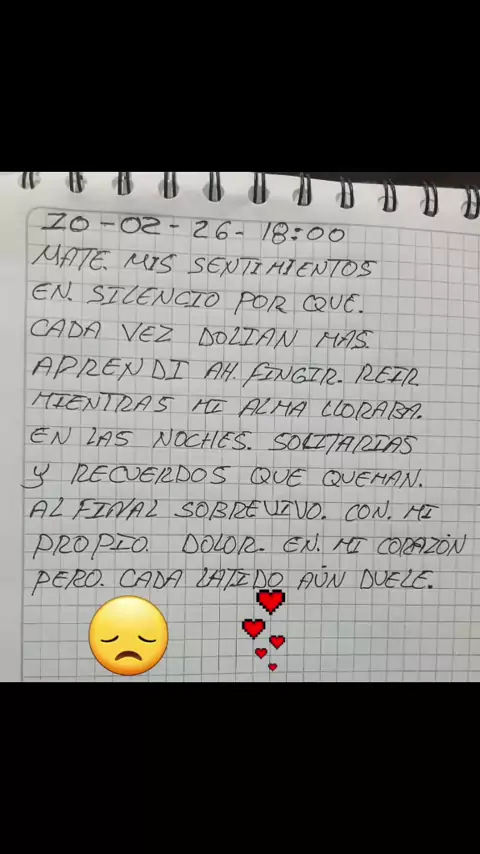 20-02-26-18:00
MATE. MIS SENTIMIENTOS
EN. SILENCIO POR QUE.
CADA VEZ DOLIAN MAS.
APRENDI AH. FINGIR. REIR
MIENTRAS MI ALMA LLORABA.
EN LAS NOCHES. SOLITARIAS
Y RECUERDOS QUE QUEMAN.
AL FINAL SOBREVIVO. CON. MI
PROPIO. DOLOR. EN. MI CORAZÓN
PERO. CADA LATIDO AÚN DUELE.